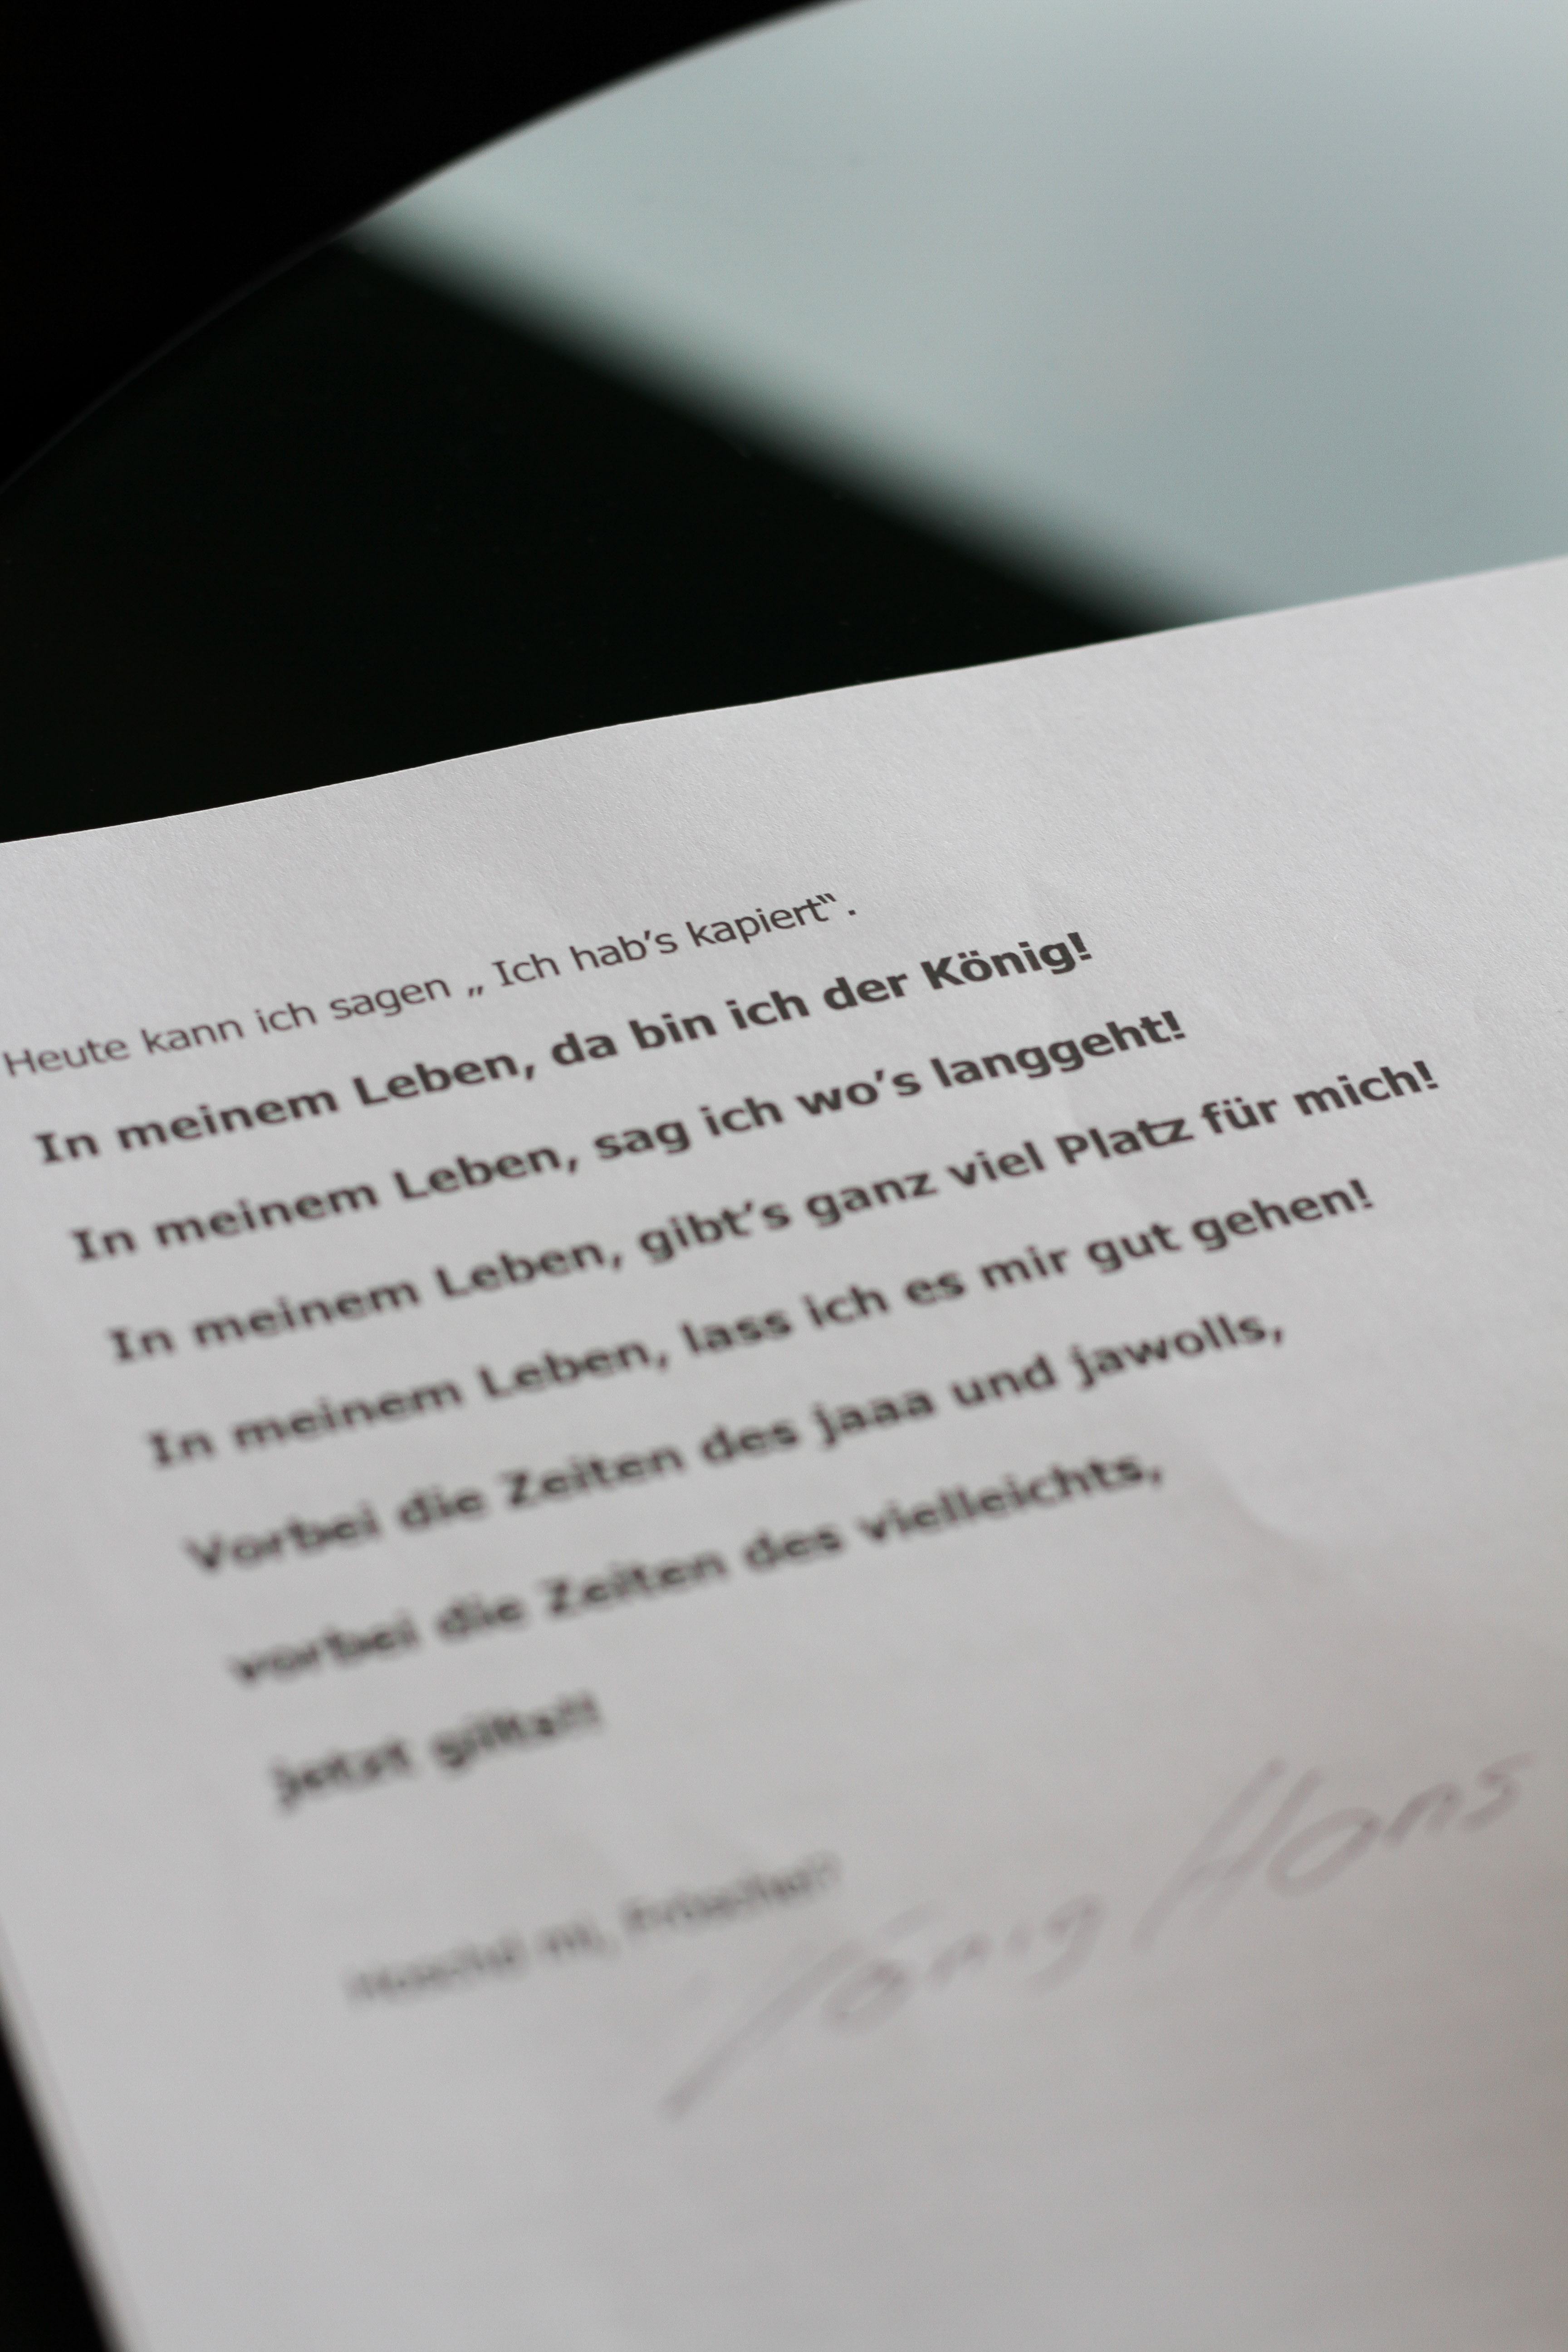 Heute kann ich sagen „ Ich hab’s kapiert“.
In meinem Leben, da bin ich der König!
In meinem Leben, sag ich wo’s langgeht!
In meinem Leben, gibt’s ganz viel Platz für mich!
In meinem Leben, lass ich es mir gut gehen!
Vorbei die Zeiten des jaaa und jawolls,
vorbei die Zeiten des vielleichts,
jetzt
König Hans